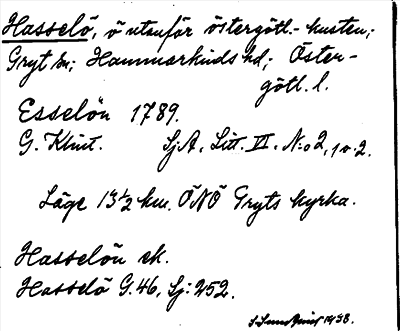 Hasselö, ö utanför östergötl.-kusten;
Gryt sn; Hammarkinds hd; Öster-
götl. l.
Esselön 1789.
G. Klint. Sj.A. Litt. VI. N:o 2, 1 o. 2.
Läge 13½ km. ÖNÖ Gryts kyrka.
Hasselön ek.
Hasselö G.46, Sj: 252.
1938.